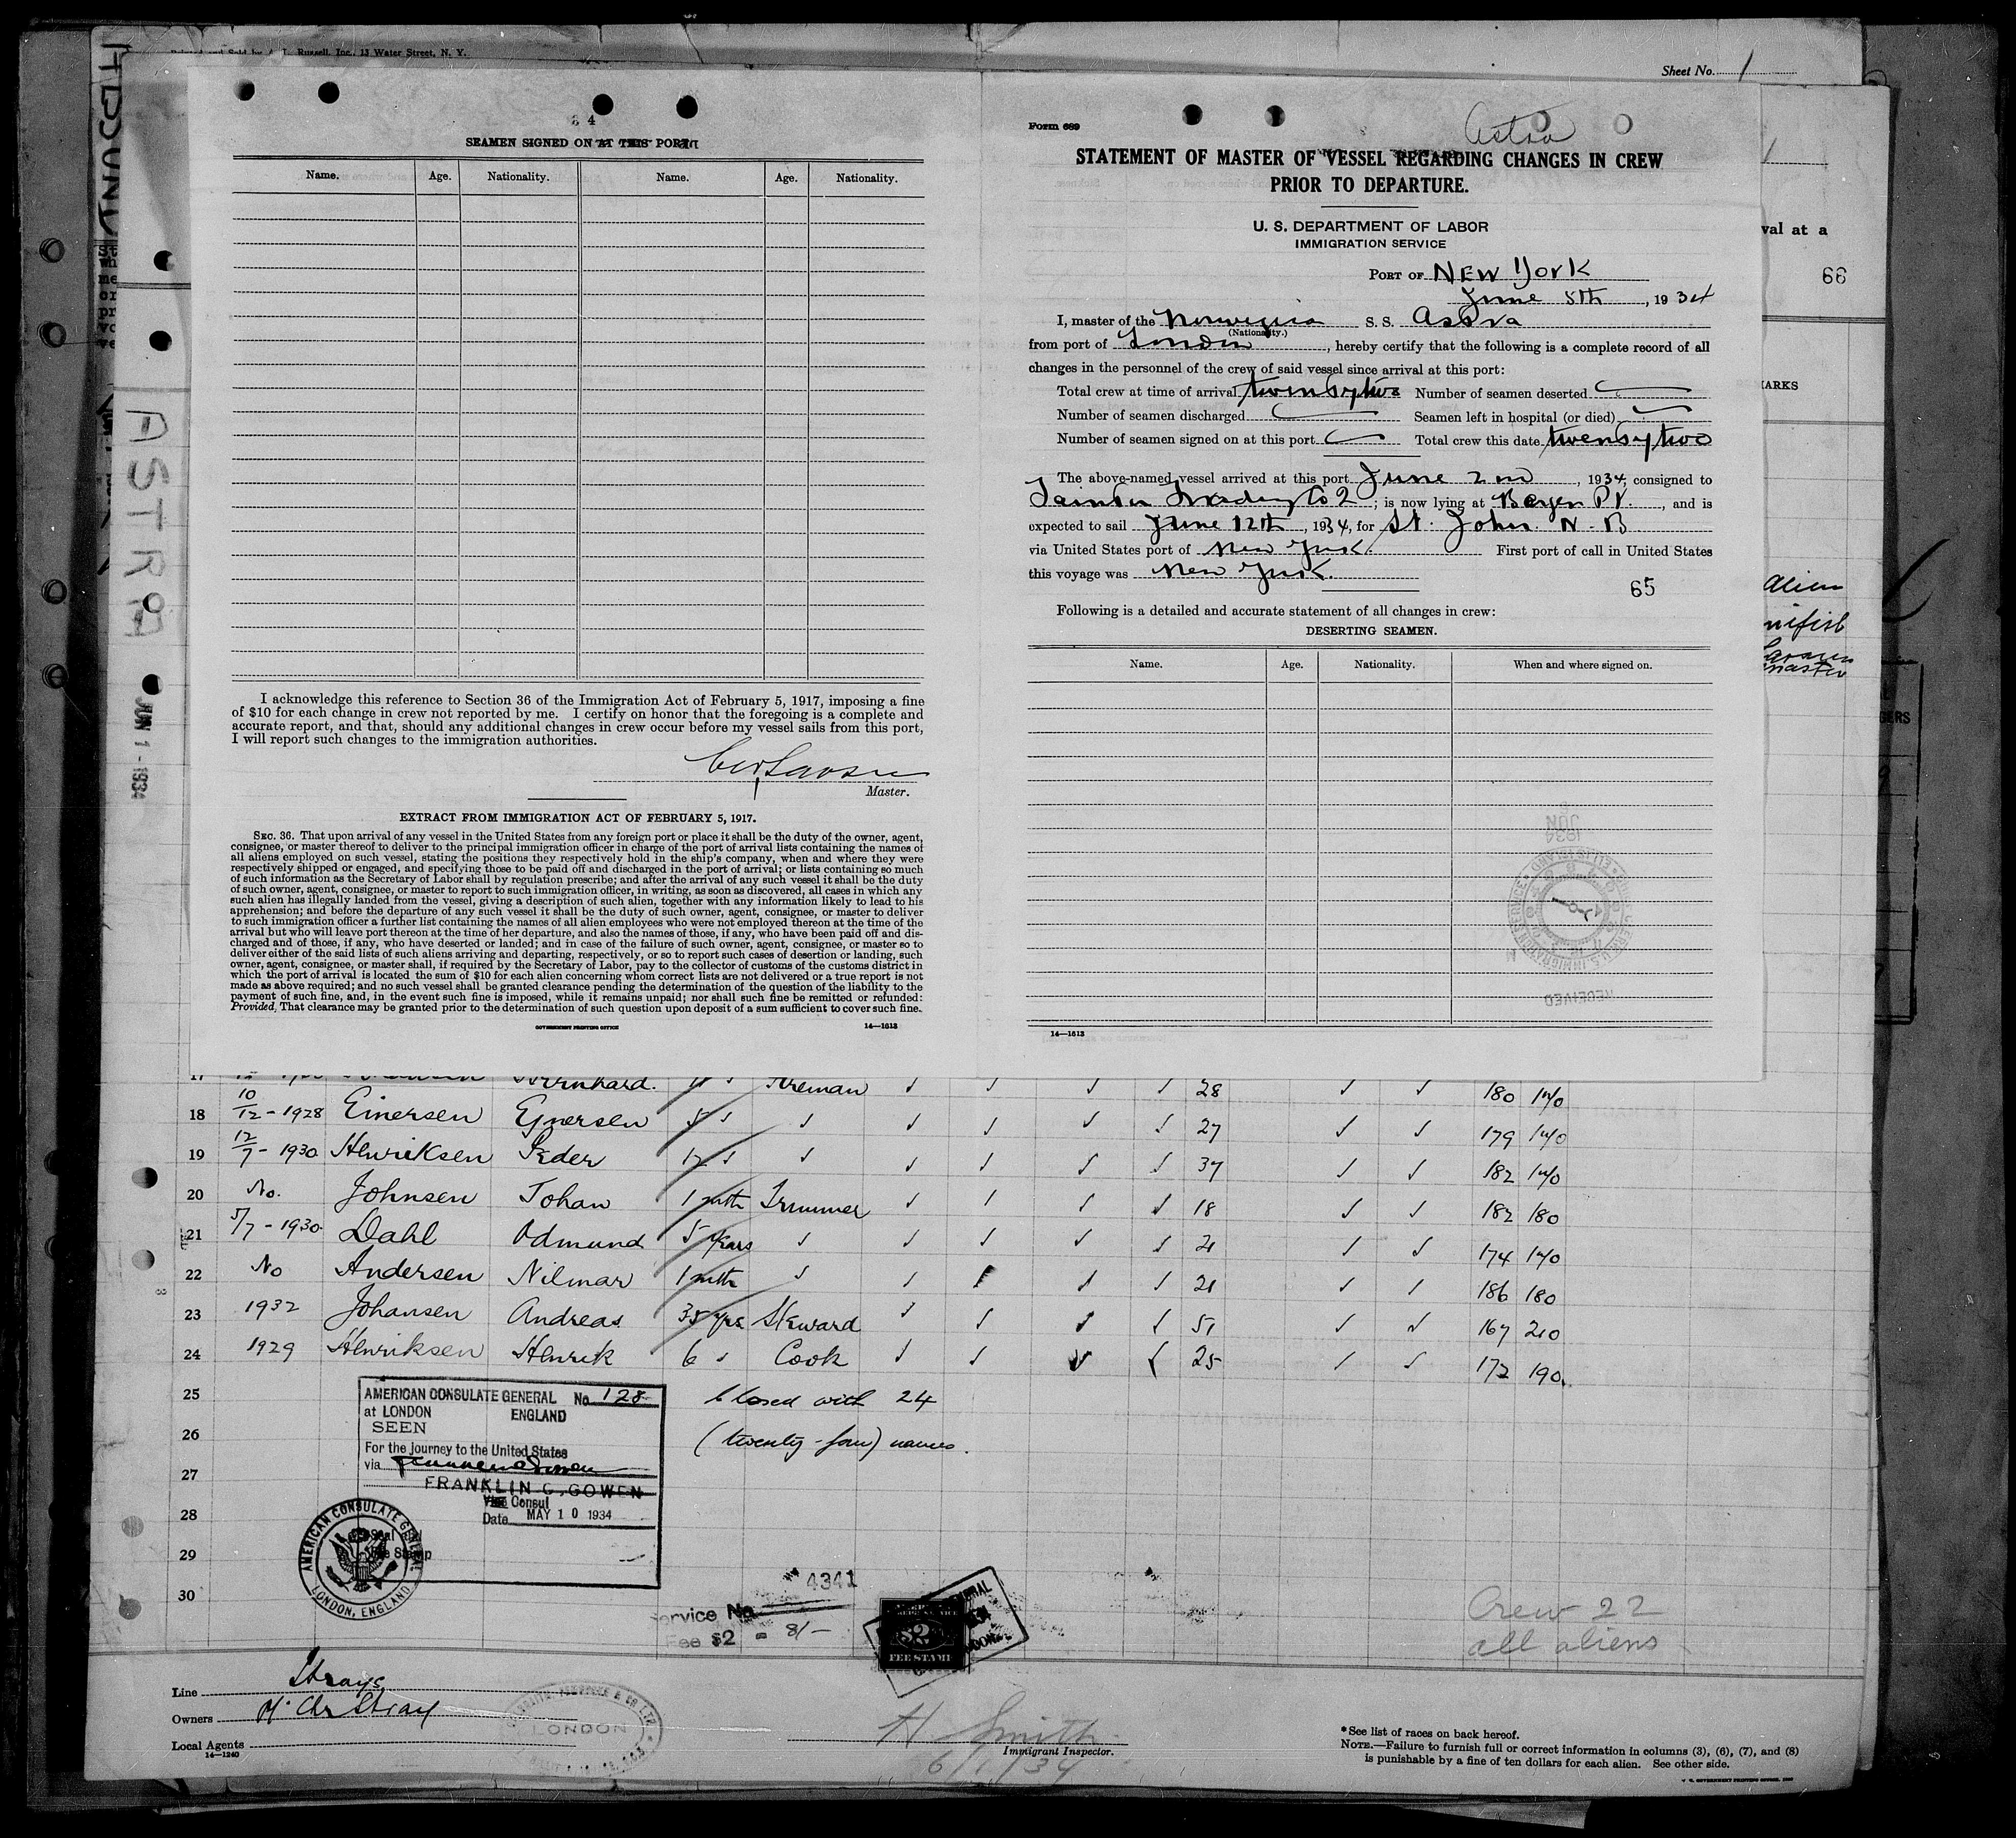 Printed and Sold by A. L. Russell, Inc., 13 Water Street, N. Y.
Sheet No. 1
ASTRA
JUN 1 - 1934
34
SEAMEN SIGNED ON AT THIS PORT
Name. Age. Nationality. Name. Age. Nationality.
I acknowledge this reference to Section 36 of the Immigration Act of February 5, 1917, imposing a fine
of $10 for each change in crew not reported by me. I certify on honor that the foregoing is a complete and
accurate report, and that, should any additional changes in crew occur before my vessel sails from this port,
I will report such changes to the immigration authorities.
Larsen
Master.
EXTRACT FROM IMMIGRATION ACT OF FEBRUARY 5, 1917.
SEC. 36. That upon arrival of any vessel in the United States from any foreign port or place it shall be the duty of the owner, agent,
consignee, or master thereof to deliver to the principal immigration officer in charge of the port of arrival lists containing the names of
all aliens employed on such vessel, stating the positions they respectively hold in the ship's company, when and where they were
respectively shipped or engaged, and specifying those to be paid off and discharged in the port of arrival; or lists containing so much
of such information as the Secretary of Labor shall by regulation prescribe; and after the arrival of any such vessel it shall be the duty
of such owner, agent, consignee, or master to report to such immigration officer, in writing, as soon as discovered, all cases in which any
such alien has illegally landed from the vessel, giving a description of such alien, together with any information likely to lead to his
apprehension; and before the departure of any such vessel it shall be the duty of such owner, agent, consignee, or master to deliver
to such immigration officer a further list containing the names of all alien employees who were not employed thereon at the time of the
arrival but who will leave port thereon at the time of her departure, and also the names of those, if any, who have been paid off and dis-
charged and of those, if any, who have deserted or landed; and in case of the failure of such owner, agent, consignee, or master so to
deliver either of the said lists of such aliens arriving and departing, respectively, or so to report such cases of desertion or landing, such
owner, agent, consignee, or master shall, if required by the Secretary of Labor, pay to the collector of customs of the customs district in
which the port of arrival is located the sum of $10 for each alien concerning whom correct lists are not delivered or a true report is not
made as above required; and no such vessel shall be granted clearance pending the determination of the question of the liability to the
payment of such fine, and, in the event such fine is imposed, while it remains unpaid; nor shall such fine be remitted or refunded:
Provided, That clearance may be granted prior to the determination of such question upon deposit of a sum sufficient to cover such fine.
GOVERNMENT PRINTING OFFICE 14—1613
Form 689
Astra
STATEMENT OF MASTER OF VESSEL REGARDING CHANGES IN CREW
PRIOR TO DEPARTURE.
U. S. DEPARTMENT OF LABOR
IMMIGRATION SERVICE
PORT OF NEW York
June 5th, 1934
I, master of the Norwegian S. S. Astra
(Nationality.)
from port of London, hereby certify that the following is a complete record of all
changes in the personnel of the crew of said vessel since arrival at this port:
Total crew at time of arrival twentytwo Number of seamen deserted
Number of seamen discharged Seamen left in hospital (or died)
Number of seamen signed on at this port Total crew this date twentytwo
The above-named vessel arrived at this port June 2nd, 1934, consigned to
Trading Co; is now lying at Bergen Pt., and is
expected to sail June 12th, 1934, for St. John N. B
via United States port of New York. First port of call in United States
this voyage was New York.
65
Following is a detailed and accurate statement of all changes in crew:
DESERTING SEAMEN.
Name. Age. Nationality. When and where signed on.
JUN
1934
RECEIVED
14—1613
val at a
66
MARKS
alien
Larsen
master
17 Bernhard. Fireman 28 180 170
18 10/12 - 1928 Einersen Ejnersen 5 27 179 170
19 12/7 - 1930 Henriksen Peder 12 37 182 170
20 No. Johnsen Johan 1 mth Trimmer 18 182 180
21 5/7 - 1930 Dahl Odmund 5 years 21 174 170
22 No Andersen Nilmar 1 mth 21 186 180
23 1932 Johansen Andreas 35 yrs Steward 51 167 210
24 1929 Henriksen Henrik 6 Cook 25 172 190
25 Closed with 24
26 (twenty-four) names.
27
28
29
30
AMERICAN CONSULATE GENERAL No 128
at LONDON ENGLAND
SEEN
For the journey to the United States
via
FRANKLIN C. GOWEN
Vice Consul
Date MAY 10 1934
Seal and
Fee Stamp
AMERICAN CONSULATE GENERAL
LONDON, ENGLAND
Service No. 4341
Fee $2 = 8/-
$2
FEE STAMP
Crew 22
all aliens
Line Strays
Owners H. Chr Stray
Local Agents
14—1240
LONDON
H Smith
Immigrant Inspector.
6/1/34
*See list of races on back hereof.
NOTE.—Failure to furnish full or correct information in columns (3), (6), (7), and (8)
is punishable by a fine of ten dollars for each alien. See other side.
U. S. GOVERNMENT PRINTING OFFICE